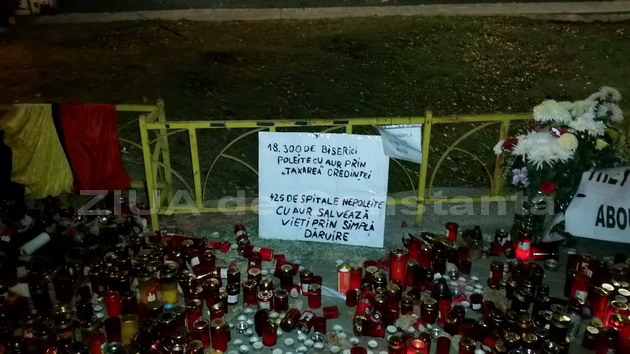 18.300 DE BISERICI
POLEITE CU AUR PRIN
„TAXAREA CREDINȚEI"
425 DE SPITALE NEPOLEITE
CU AUR SALVEAZĂ
VIEȚI PRIN SIMPLA
DĂRUIRE
ABOU
ZIUA de Constanta